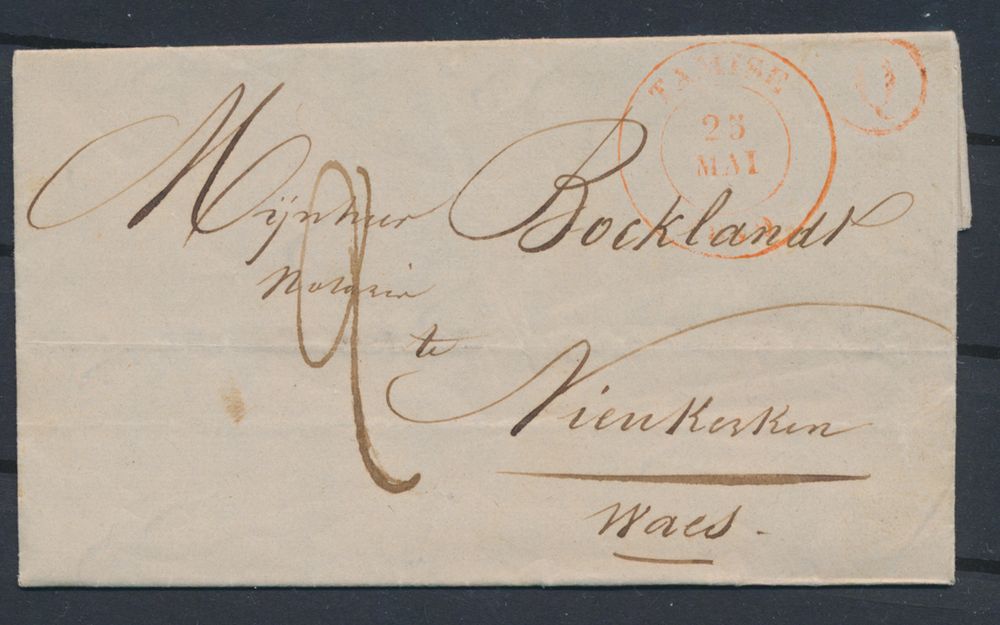 TAMISE
25
MAI
Mÿnheer Bocklandt
Notaris
te
Nieukerken
Waes.